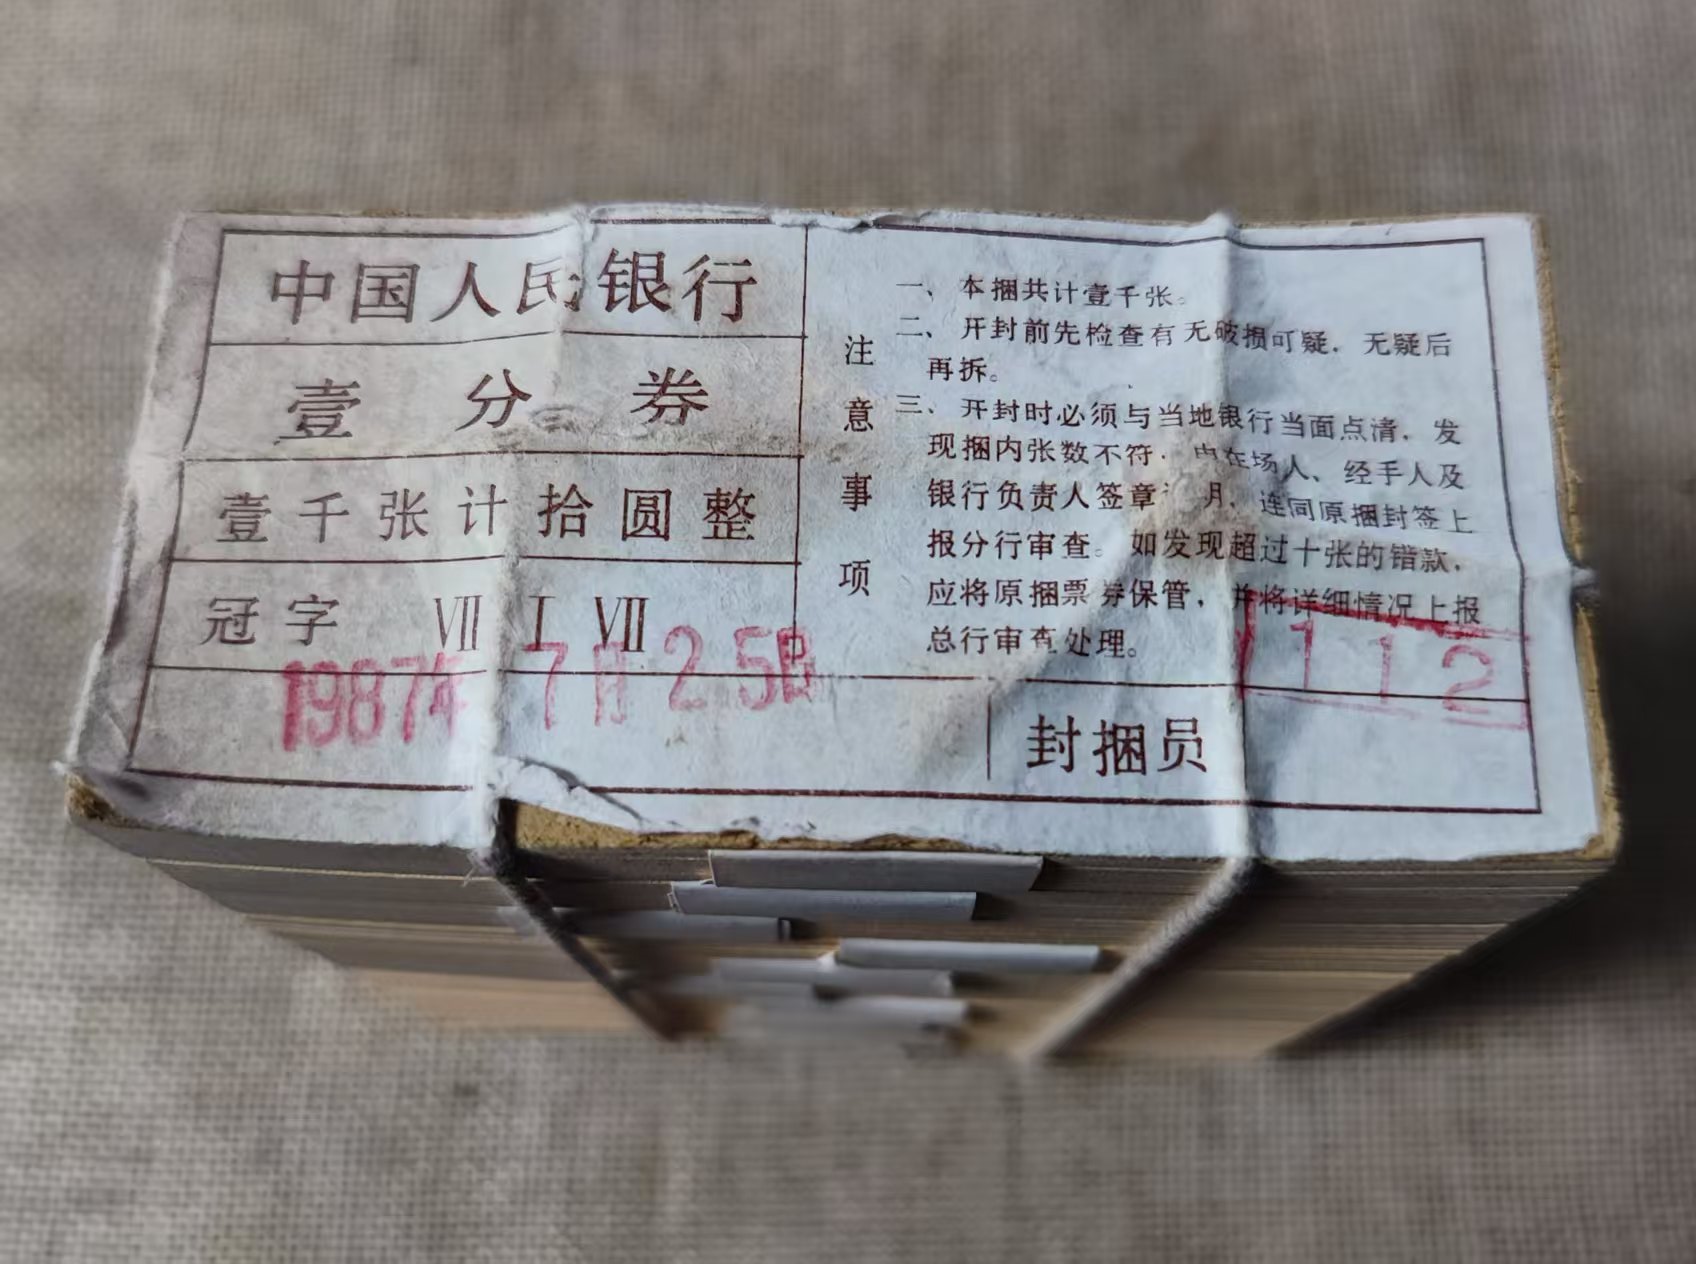 中国人民银行
壹分券
壹千张计拾圆整
冠字 Ⅶ Ⅰ Ⅶ
1987年 7月25日
注意事项
一、本捆共计壹千张。
二、开封前先检查有无破损可疑，无疑后
再拆。
三、开封时必须与当地银行当面点清，发
现捆内张数不符，由在场人、经手人及
银行负责人签章 月，连同原捆封签上
报分行审查。如发现超过十张的错款，
应将原捆票券保管，并将详细情况上报
总行审查处理。
112
封捆员